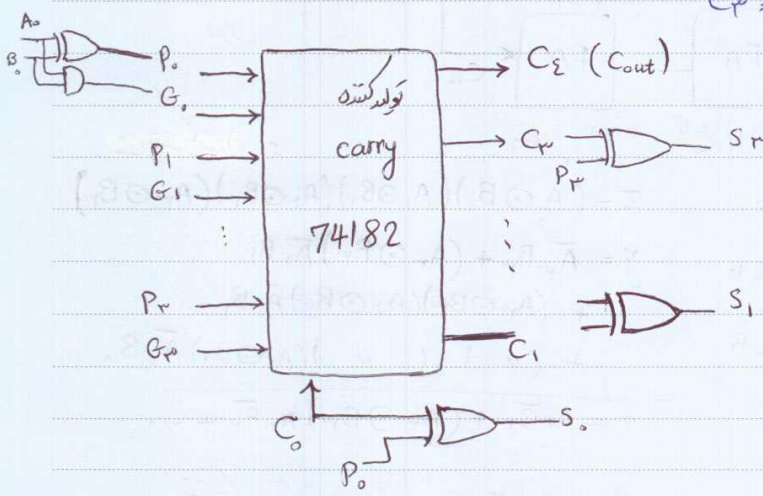 C۳ =
A۰
B۰
P۰
G۰
P۱
G۱
P۳
G۳
تولید کننده
carry
74182
C۴ (Cout)
C۳
P۳
S۳
S۱
C۱
C۰
P۰
S۰